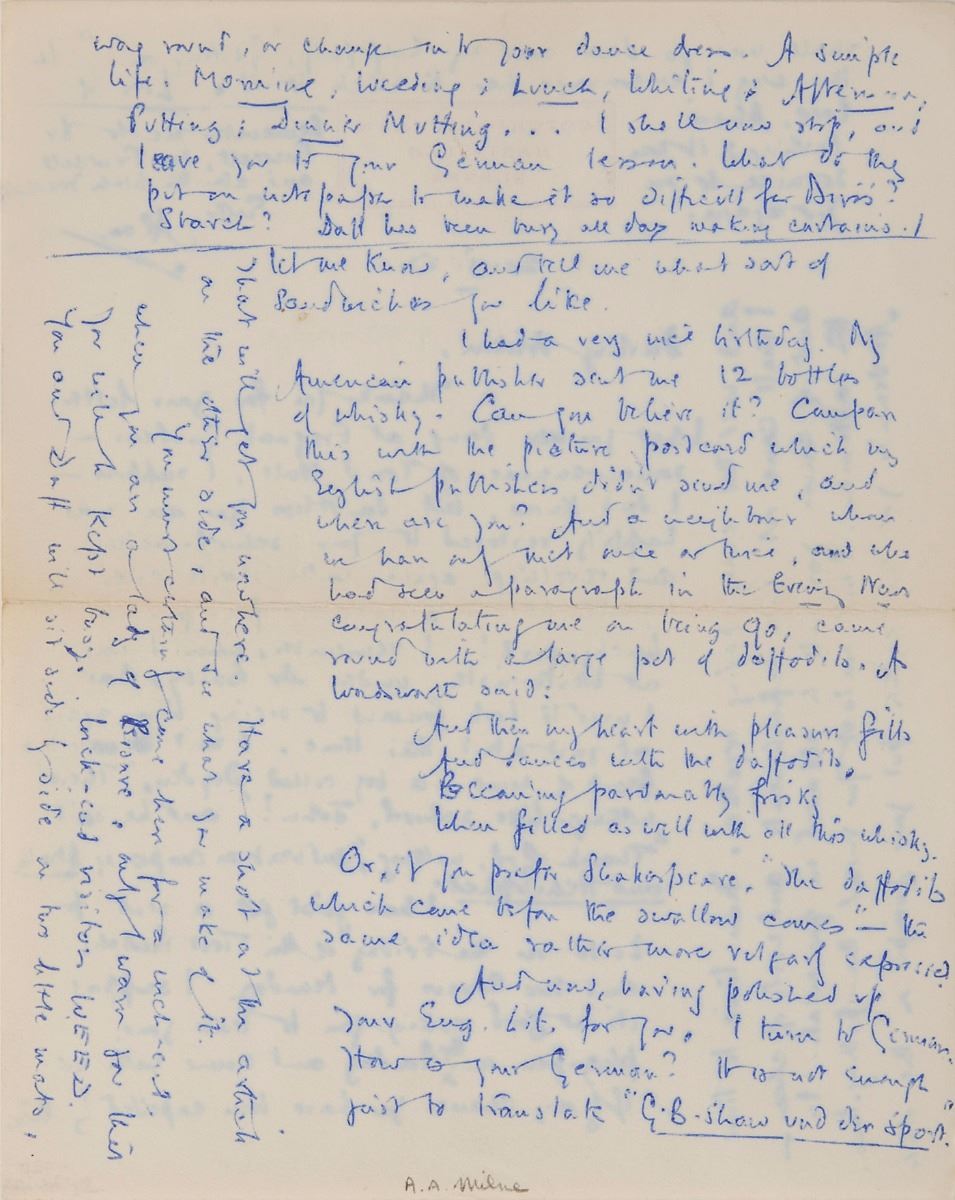 way round, or change into your dance dress. A simple
life: Morning, Weeding; Lunch, Whiting; Afternoon,
Putting; Dinner Mutting. . . I shall now stop, and
leave you to your German lesson. What do they
put on notepaper to make it so difficult for Biros?
Starch? Daff has been busy all day making curtains./
let me know, and tell me what sort of
sandwiches you like.
I had a very nice birthday. My
American publisher sent me 12 bottles
of whisky. Can you believe it? Compare
this with the picture postcard which my
English publishers didn't send me, and
where are you? And a neighbour whom
we have only met once or twice, and who
had seen a paragraph in the Evening News
congratulating me on being 70, came
round with a large pot of daffodils. As
Wordsworth said:
And then my heart with pleasure fills
And dances with the daffodils,
Becoming pardonably frisky
When filled as well with all this whisky.
Or, if you prefer Shakespeare, "The daffodils
which come before the swallow comes" — the
same idea rather more vulgarly expressed.
And now, having polished up
your Eng. Lit. for you, I turn to German.
How is your German? It is not enough
just to translate "G.B. Shaw und der Sport."
that will get you anywhere. Have a shot at the article
on the other side, and see what you make of it.
You must certainly come here for a weekend.
when you are a lady of leisure, only I warn you this
you will kept busy. Week-end visitors WEED.
You and Daff will sit side by side on two little mats,
A. A. Milne